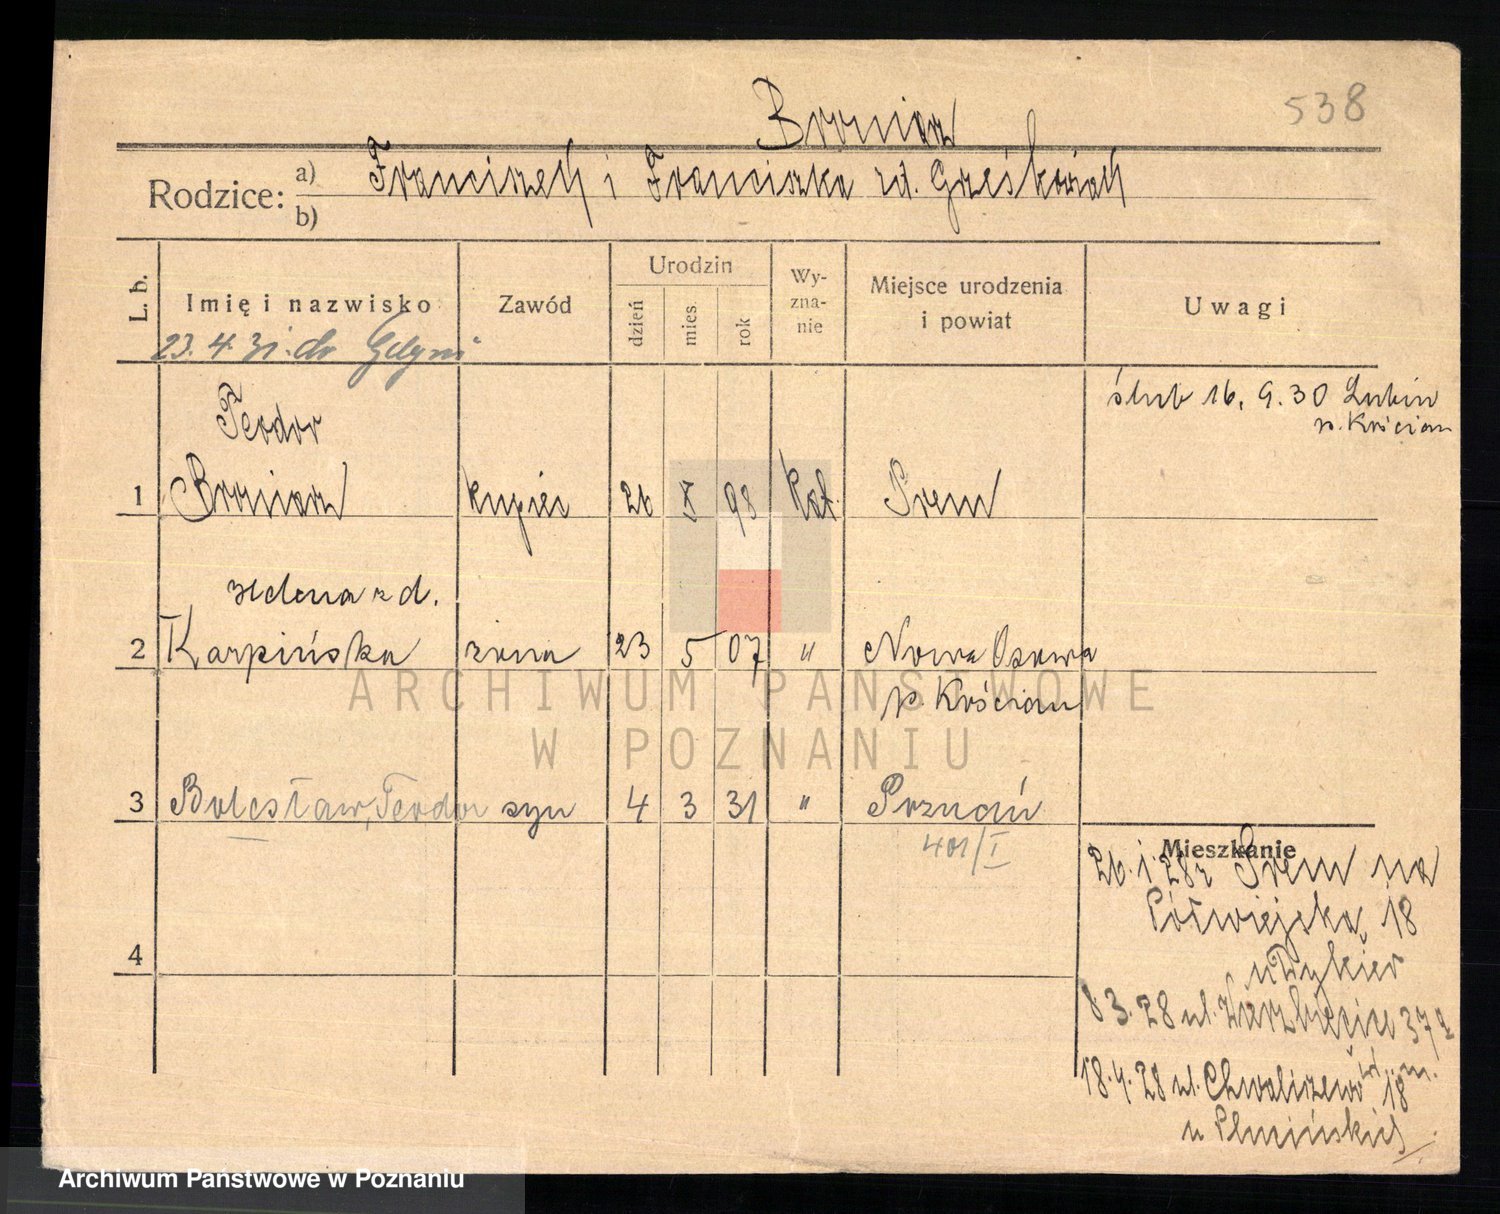 538
Broniarz
Rodzice: a) Franciszek i Franciszka zd. Grześkowiak
b)
L. b.
Imię i nazwisko
Zawód
Urodzin
dzień
mies.
rok
Wy-
zna-
nie
Miejsce urodzenia
i powiat
Uwagi
23.4.31. do Gdyni
ślub 16. 9. 30 Lubin
p. Kościan
Teodor
1 Broniarz kupiec 26 X 98 kat. Śrem
Helena z d.
2 Karpińska żona 23 5 07 " Nowa Osowa
p. Kościan
3 Bolesław, Teodor syn 4 3 31 " Poznań
401/I
4
Mieszkanie
26. 1. 28 z Śrem na
Półwiejska 18
u Dykier
8 3. 28 ul. Wierzbięcice 37a
18. 4. 28 ul. Chwaliszewo 18
ARCHIWUM PAŃSTWOWE
W POZNANIU
Archiwum Państwowe w Poznaniu